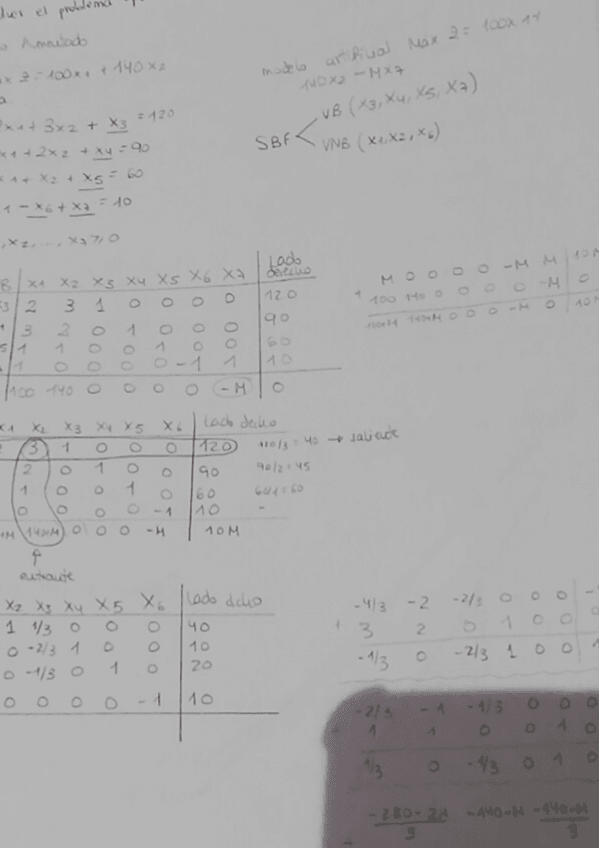 el problema
Aumulado
x Z = 100x1 + 140x2
x1 + 3x2 + x3 = 120
x1 + 2x2 + x4 = 90
x1 + x2 + x5 = 60
1 - x6 + x7 = 10
x2, ..., x7 ≥ 0
modelo artificial Max Z = 100x1+
140x2 - Mx7
SBF < VB (x3, x4, x5, x7)
VNB (x1, x2, x6)
B x1 x2 x3 x4 x5 x6 x7 Lado derecho
x3 2 3 1 0 0 0 0 120
3 2 0 1 0 0 0 90
5 1 1 0 0 1 0 0 60
1 0 0 0 0 -1 1 10
100 140 0 0 0 0 -M 0
M 0 0 0 0 -M M 10M
+ 100 140 0 0 0 0 -M 0
100+M 140+M 0 0 0 -M 0 10M
x1 x2 x3 x4 x5 x6 Lado decho
3 1 0 0 0 120 120/3 = 40 → saliente
2 0 1 0 0 90 90/2 = 45
1 0 0 1 0 60 60/1 = 60
0 0 0 0 -1 10 -
+M 140+M 0 0 0 -M 10M
↑
entrante
x2 x3 x4 x5 x6 Lado dcho
1 1/3 0 0 0 40
0 -2/3 1 0 0 10
0 -1/3 0 1 0 20
0 0 0 0 -1 10
-4/3 -2 -2/3 0 0 0
+ 3 2 0 1 0 0
-1/3 0 -2/3 1 0 0
-2/3 -1 -1/3 0 0 0
1 1 0 0 1 0
1/3 0 -1/3 0 1 0
-140-M